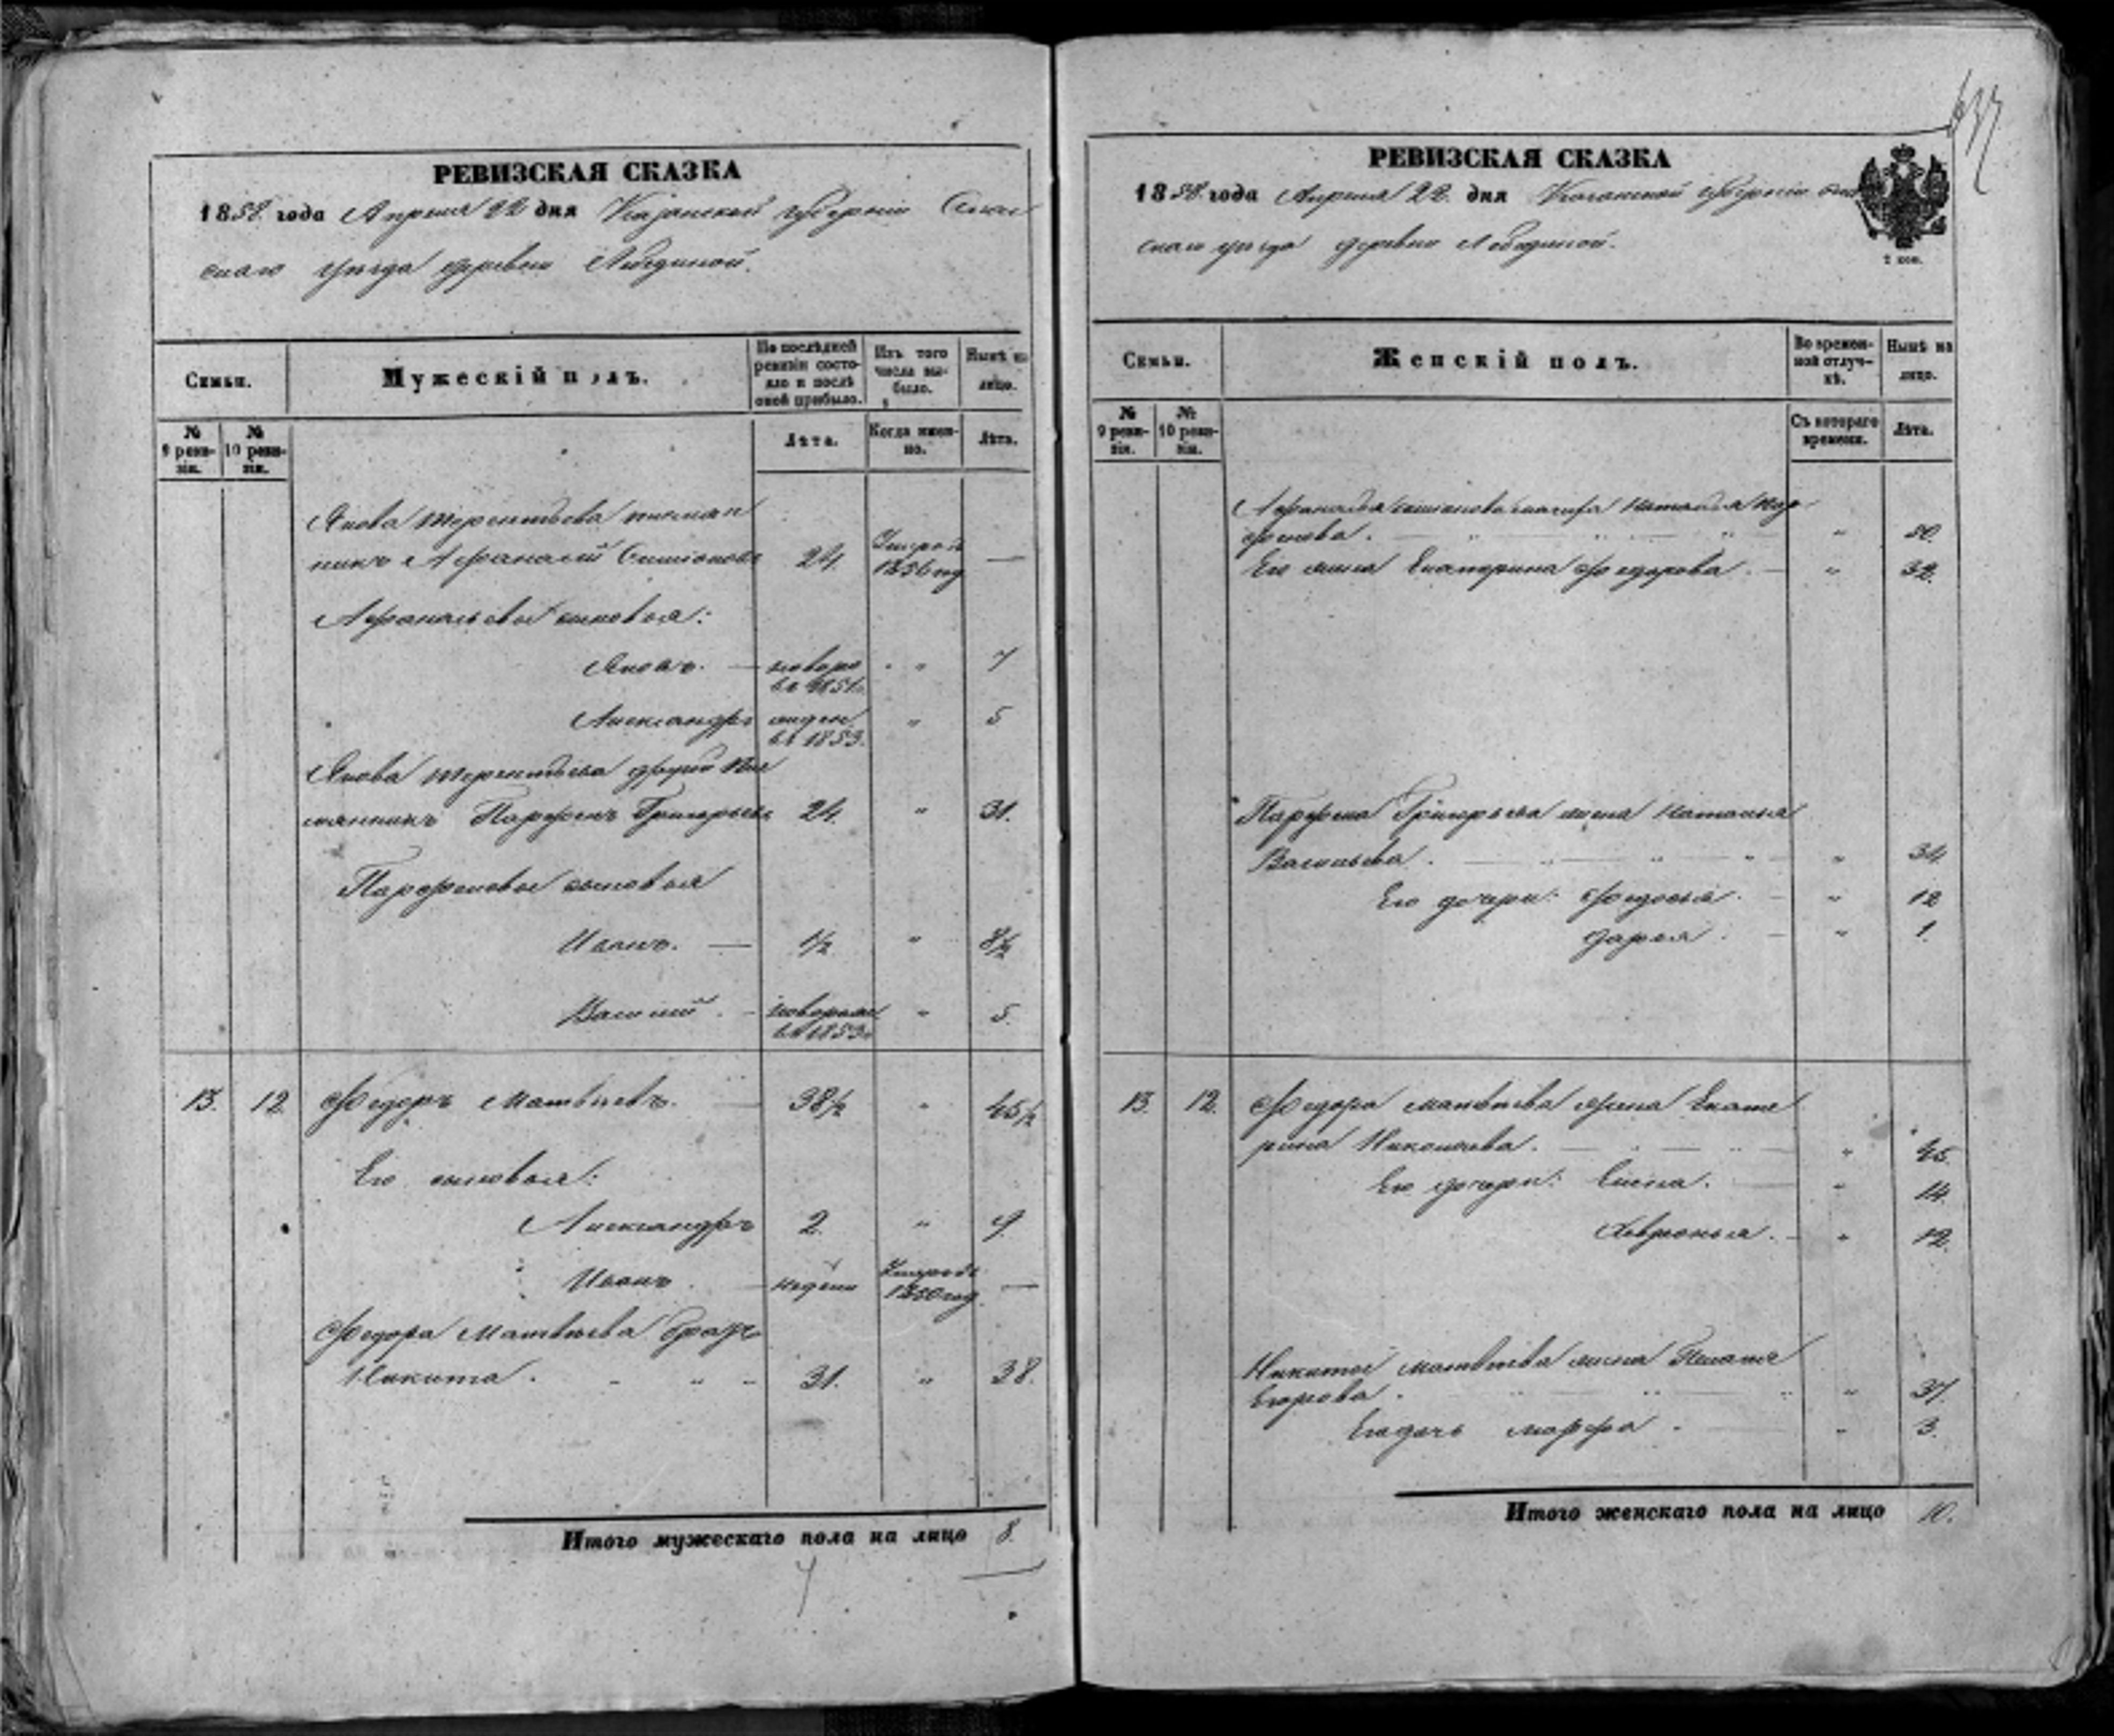 РЕВИЗСКАЯ СКАЗКА
1858 года Апреля 22 дня Казанской губернiи Спас
скаго уѣзда деревни
Семьи.
Мужескiй полъ.
По послѣдней ревизiи состояло и послѣ оной прибыло.
Изъ того числа выбыло.
Нынѣ на лицо.
№ 9 ревизiи.
№ 10 ревизiи.
Лѣта.
Когда именно.
Лѣта.
Якова Терентьева племян
никъ Афанасiй Симiоновъ 24. 1856 год —
Афанасьевы сыновья:
Яковъ. — новоро въ 1851. " 7
Александръ въ 1853. " 5
Якова Терентьева другой пле
мянникъ Парфенъ Григорьевъ 24. " 31.
Парфеновы сыновья
Иванъ. — 1/2 " 8 1/2
Василiй. - новорож въ 1853 " 5.
13. 12. Федоръ Матвѣевъ. 38 1/2 " 45 1/2
Его сыновья:
Александръ 2. " 9.
Иванъ. недели 1850 год. —
Федора Матвѣева братъ
Никита. 31. " 38.
Итого мужескаго пола на лицо 8.
РЕВИЗСКАЯ СКАЗКА
1858 года Апреля 22 дня Казанской губернiи Спас
скаго уѣзда деревни
2 коп.
Семьи.
Женскiй полъ.
Во временной отлучкѣ.
Нынѣ на лицо.
№ 9 ревизiи.
№ 10 ревизiи.
Съ котораго времени.
Лѣта.
Афанасья Симiонова Наталья Пар
фенова. " 50.
Его жена Екатерина Федорова. — " 32.
Парфена Григорьева жена Наталья
Васильева. " 34
Его дочери: Федосья. — " 12
Дарья. — " 1.
13. 12. Федора Матвѣева жена Екате
рина Николаева. " 45.
Его дочери: Елена. " 14.
Хавронья. - " 12.
Никиты Матвѣева жена Пелагея
Егорова. " 37.
Его дочь Марфа. " 3.
Итого женскаго пола на лицо 10.